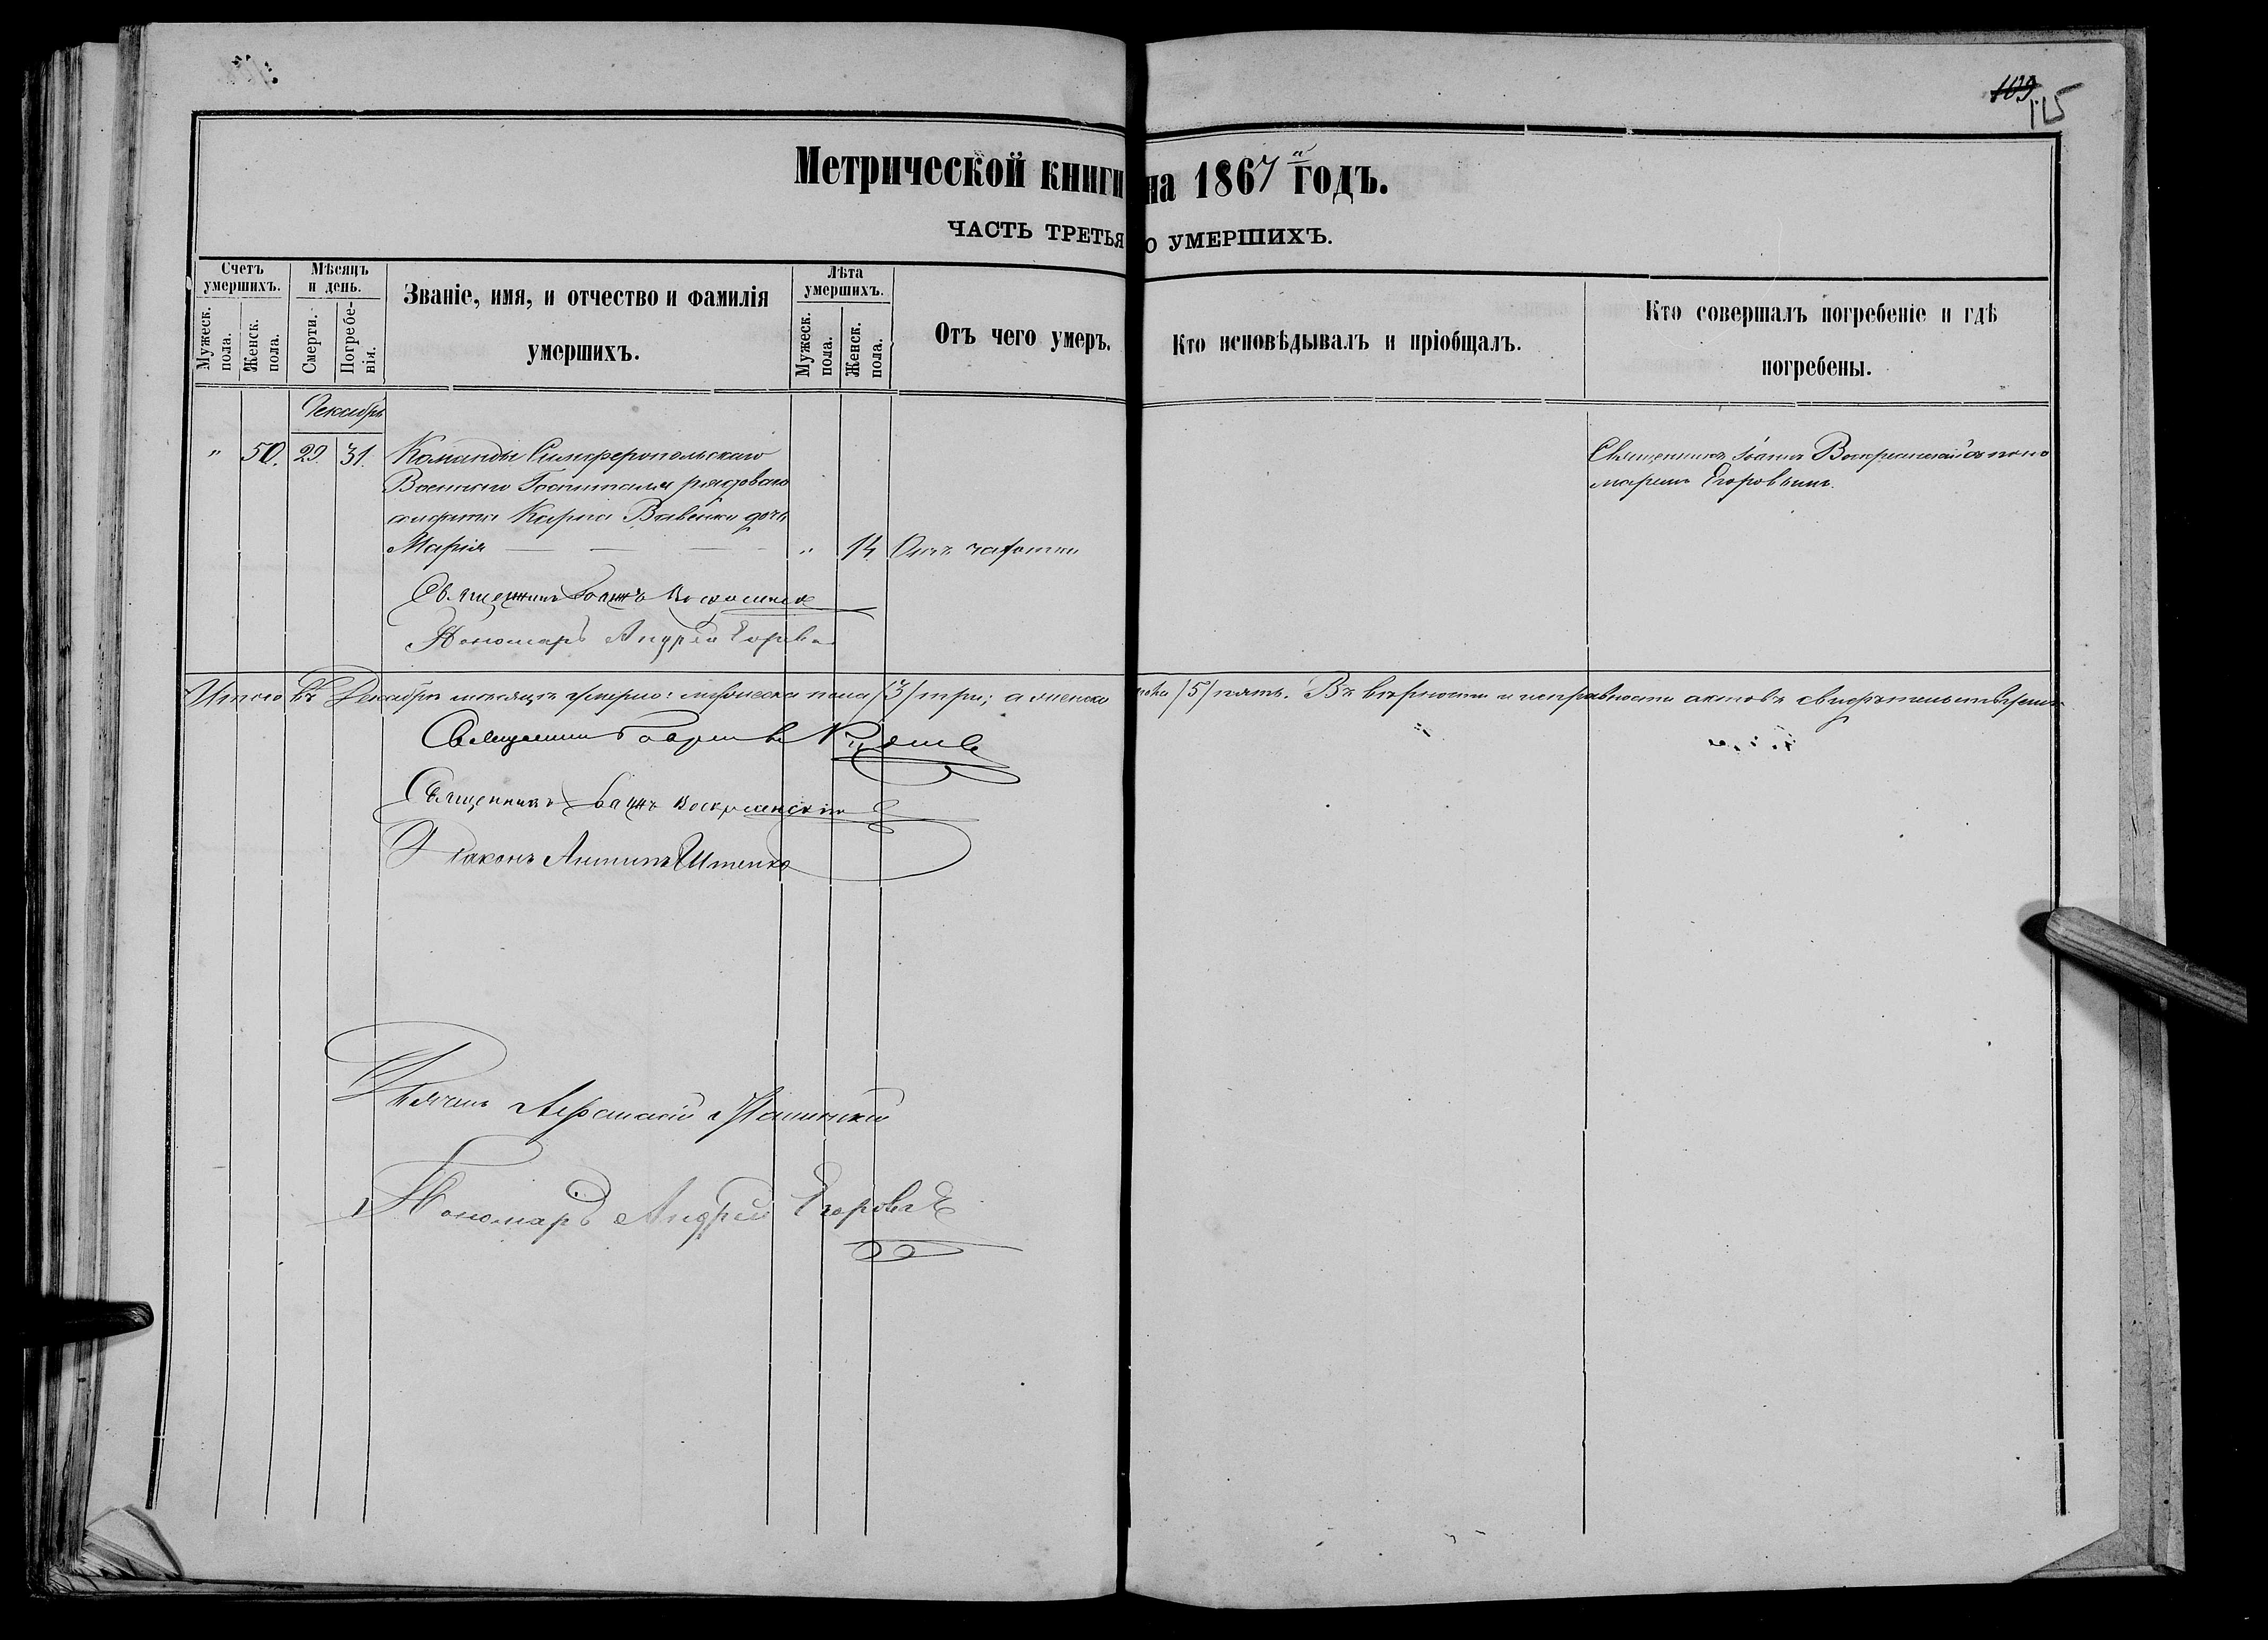 109
115
Метрической книги на 1867й годъ.
ЧАСТЬ ТРЕТЬЯ О УМЕРШИХЪ.
Счетъ умершихъ.
Мужеск. пола.
Женск. пола.
Мѣсяцъ и день.
Смерти.
Погребенія.
Званіе, имя, и отчество и фамилія
умершихъ.
Лѣта умершихъ.
Мужеск. пола.
Женск. пола.
Отъ чего умеръ.
Кто исповѣдывалъ и пріобщалъ.
Кто совершалъ погребеніе и гдѣ
погребены.
Декабрь
" 50. 29. 31. Команды Симферопольскаго
Военнаго Госпиталя рядоваго
солдата Карпа дочь
Марія " 14 Отъ чахотки
Священникъ Іоаннъ Воскресенскій съ поно
маремъ Егоровымъ.
Священникъ Іоаннъ Воскресенск
Пономарь Андрей Егоровъ
Итого въ Декабрѣ мѣсяцѣ умерло: мужеска пола /3/ три; а женска пола /5/ пять. Въ вѣрности и исправности актовъ свидѣтельствуемъ
Священникъ
Священникъ Іоаннъ Воскресенскій
Діаконъ Антипъ Иженко
Дьячекъ Афанасій
Пономарь Андрей Егоровъ